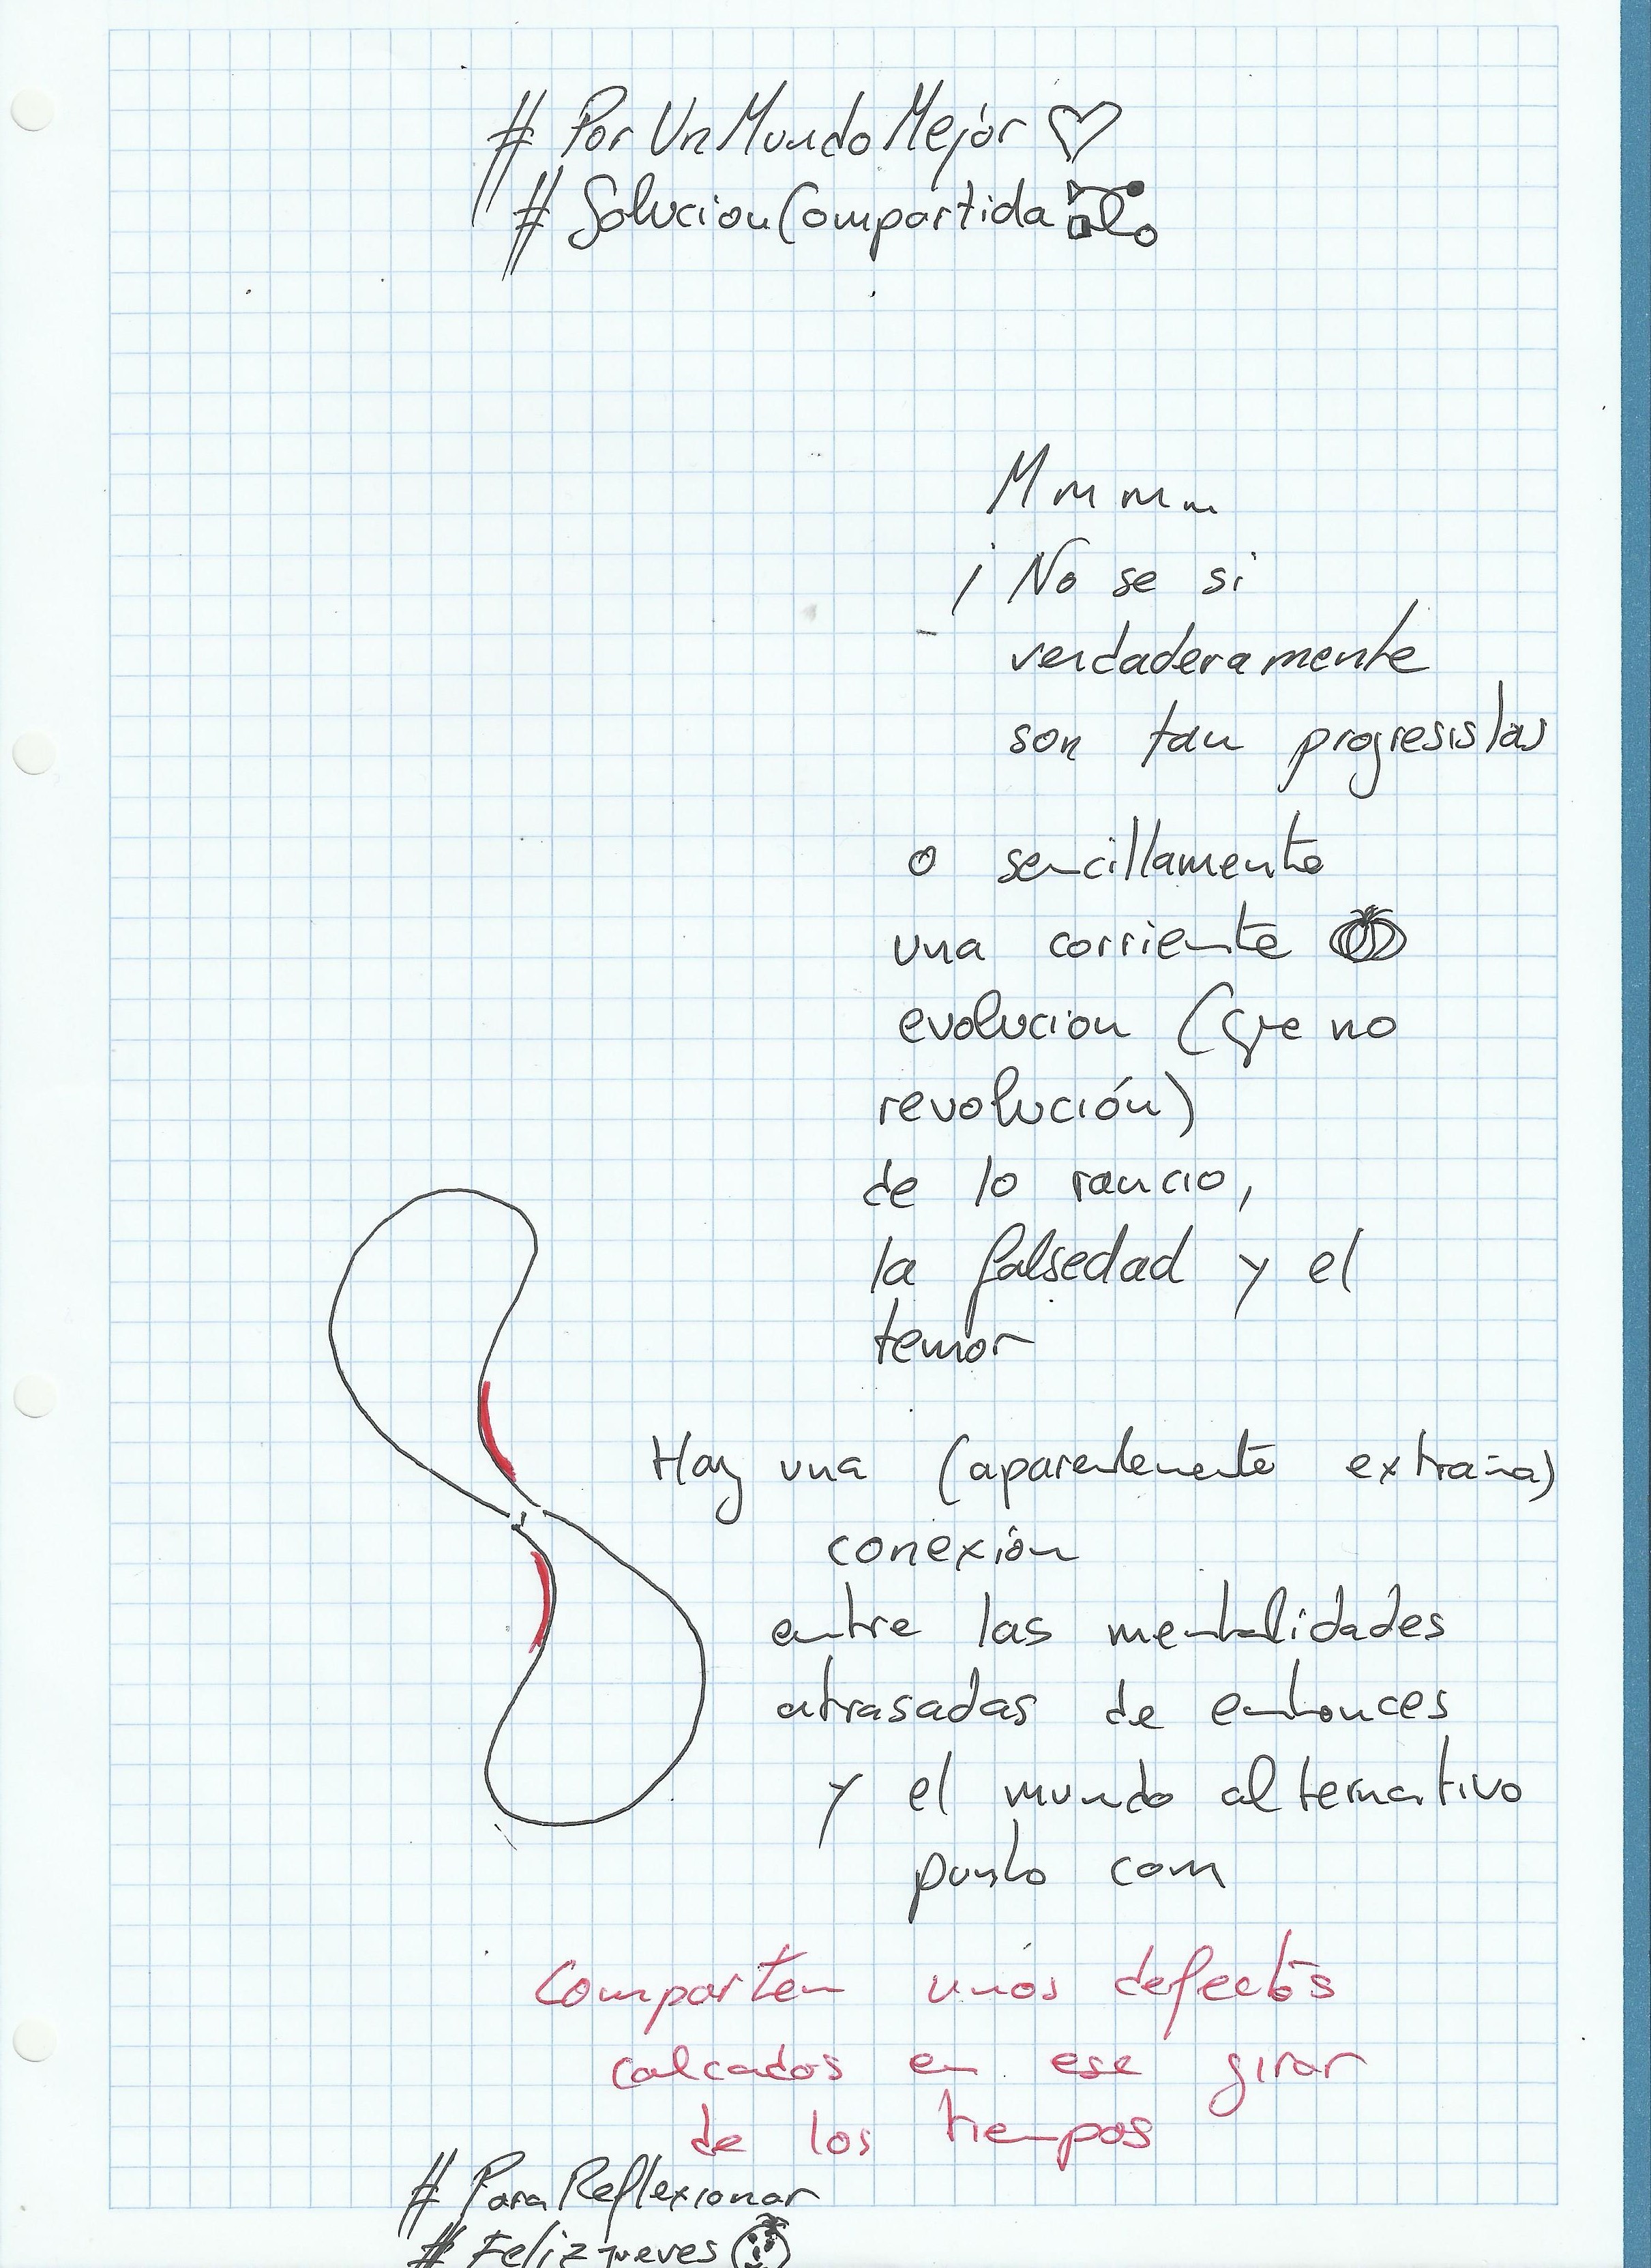 # PorUnMundoMejor
# SolucionCompartida
Mmmm
¡No se si
verdaderamente
son tan progresistas
o sencillamente
una corriente
evolucion (que no
revolución)
de lo rancio,
la falsedad y el
temor
Hay una (aparentemente extraña)
conexión
entre las mentalidades
atrasadas de entonces
y el mundo alternativo
punto com
Comparten unos defectos
calcados en ese girar
de los tiempos
# ParaReflexionar
# FelizJueves